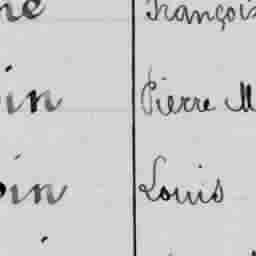 François
in Pierre M
in Louis